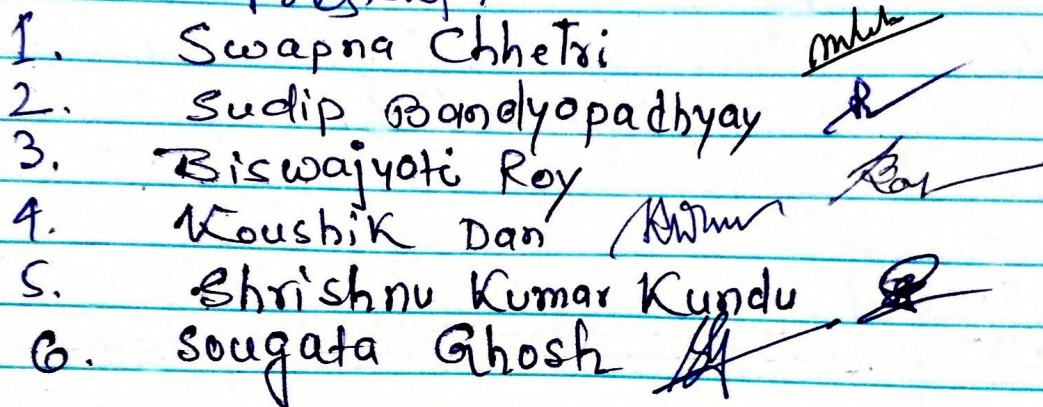 1. Swapna Chhetri
2. Sudip Bandyopadhyay
3. Biswajyoti Roy
4. Koushik Dan
5. Shrishnu Kumar Kundu
6. Sougata Ghosh